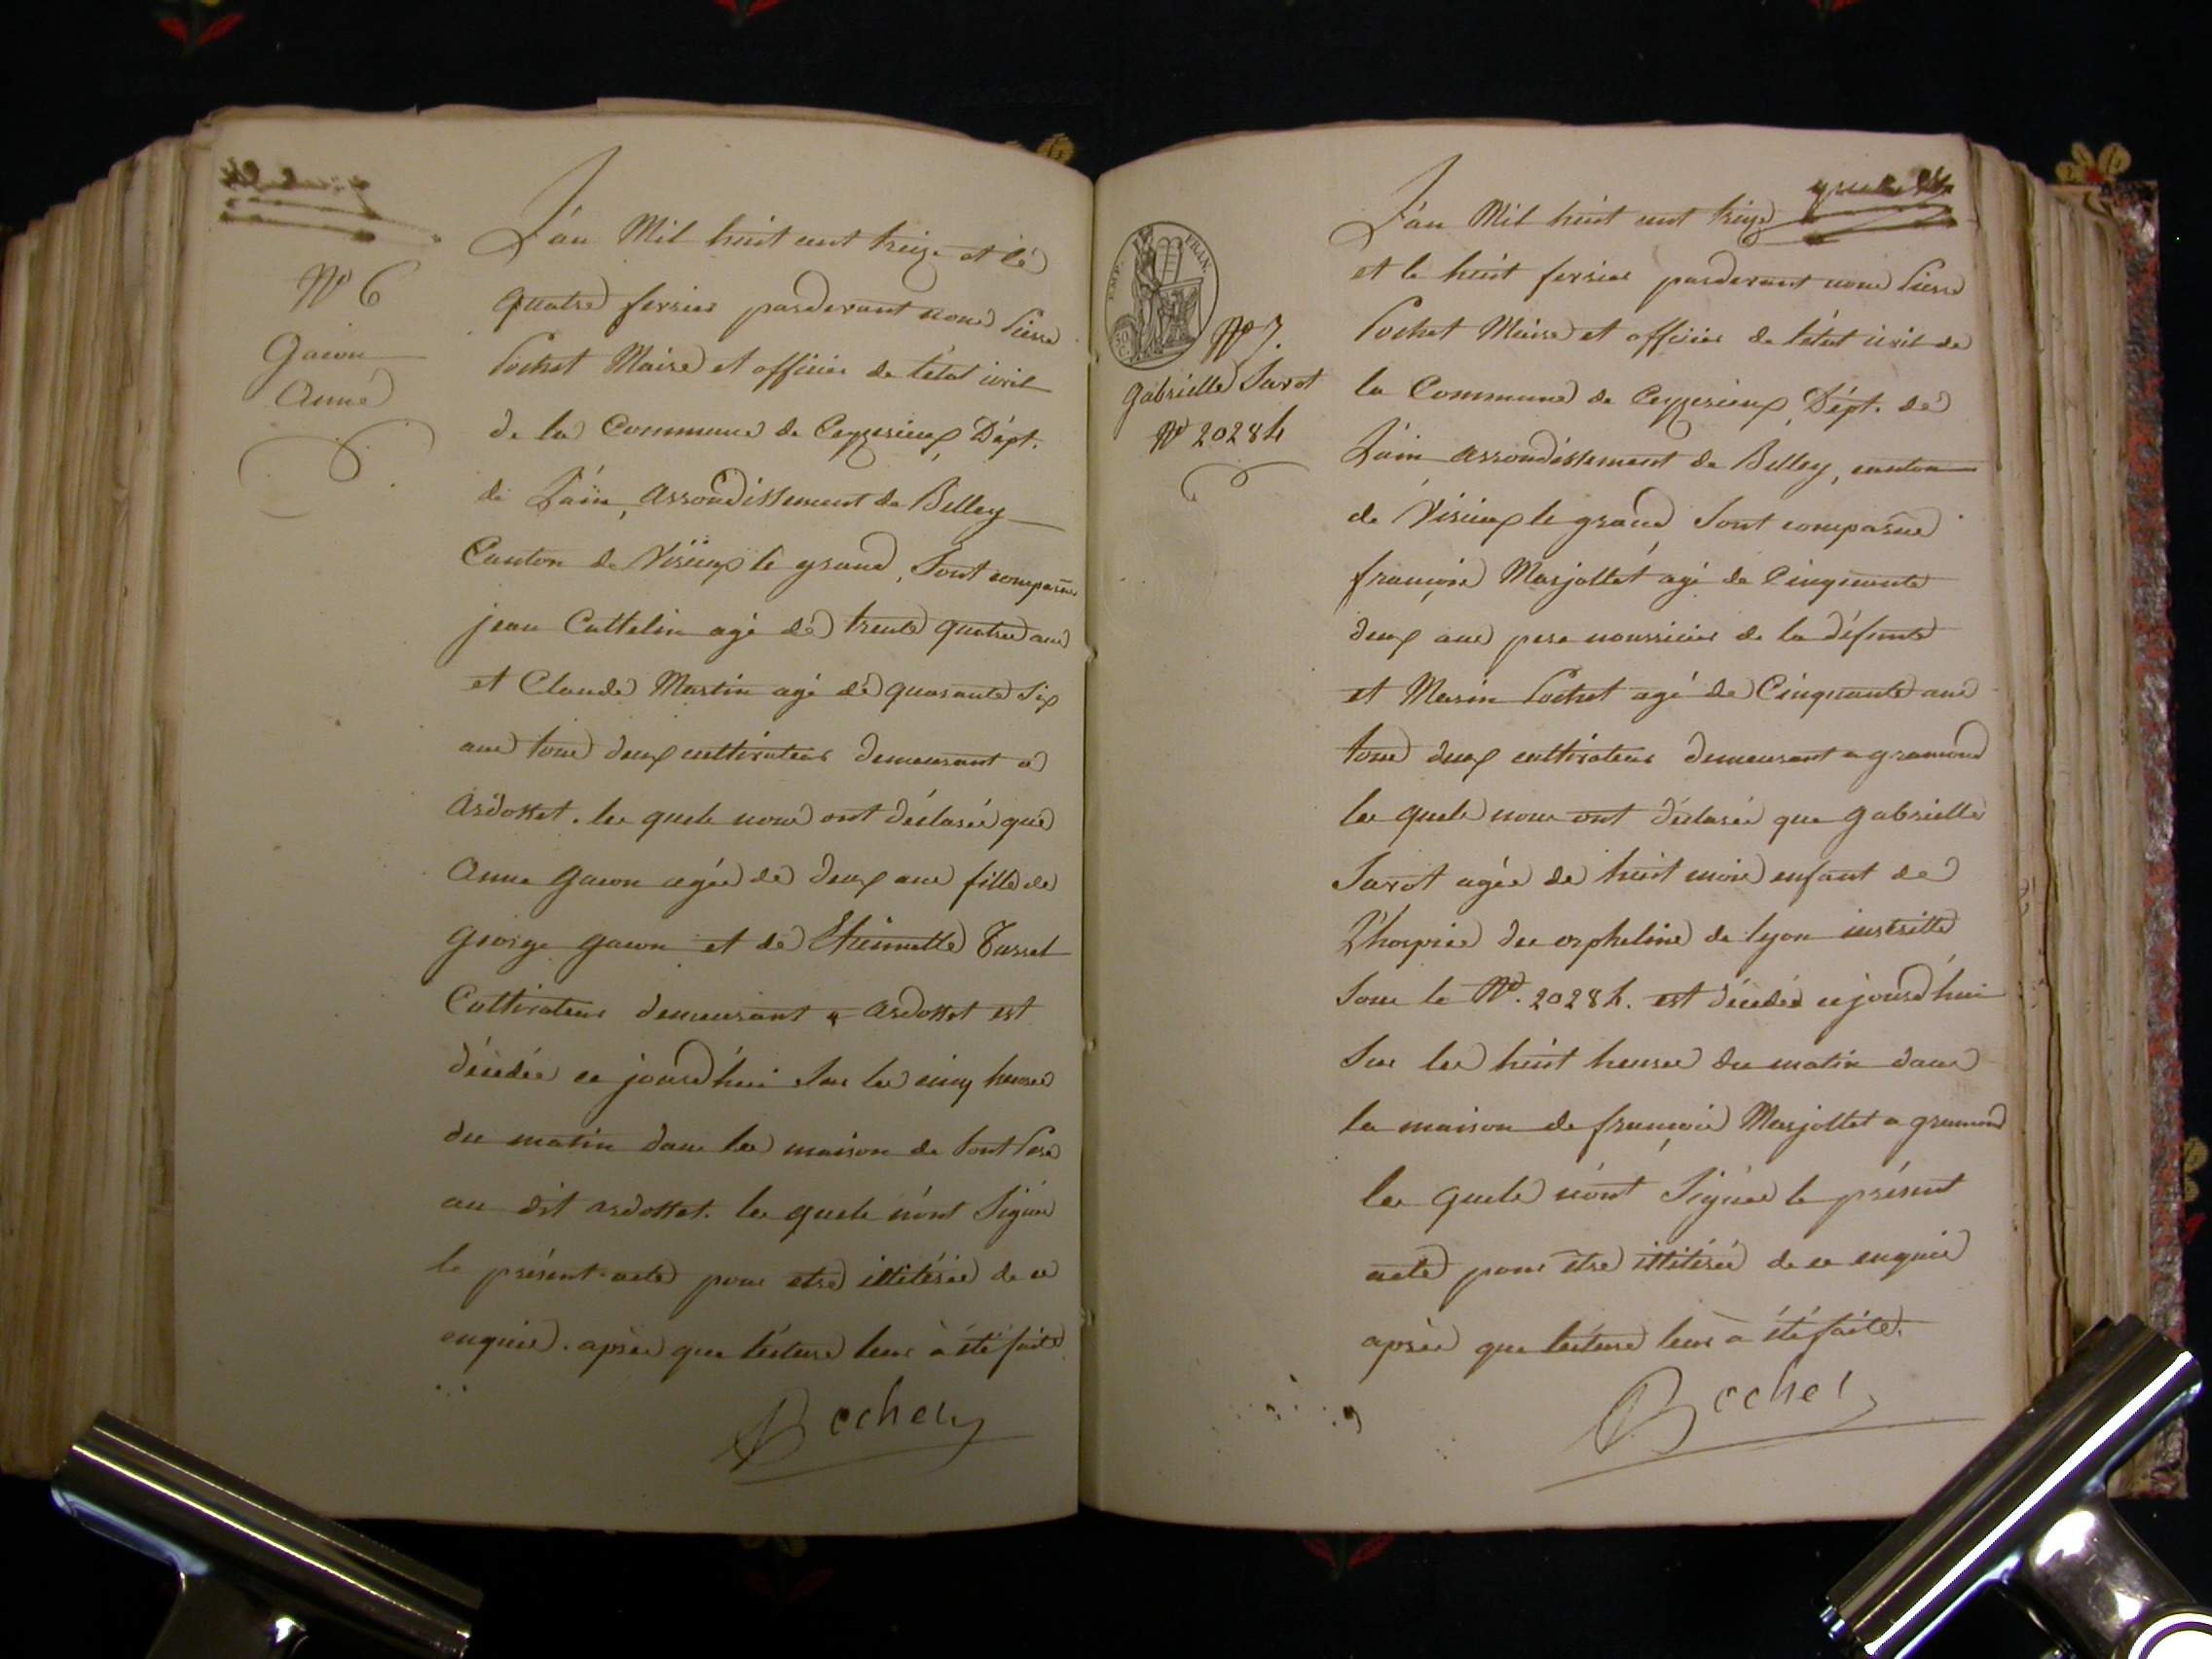 Nº 6
Gacon
Anne
L'an Mil huit cent treize et le
quatre fevrier pardevant nous Pierre
Pochet Maire et officier de l'état civil
de la Commune de Ceyzerieux, Dépt.
de L'ain, arrondissement de Belley
Canton de Virieux le grand, Sont comparus
jean Cattelin agé de trente quatre ans
et Claude Martin agé de quarante Six
ans tous deux cultivateurs demeurant a
ardosset. les quels nous ont déclarés que
anne gacon agée de deux ans fille de
george gacon et de Etiennette
Cultivateurs demeurant a ardosset est
décédée ce jourd'hui Sur les cinq heures
du matin dans la maison de Sont Pere
au dit ardosset. les quels n'ont Signés
le présent acte pour etre illitérés de ce
enquis. après que lécture leur à été faite
Pochet
EMP. FRAN.
Nº 7.
gabrielle Sarot
Nº 20284
L'an Mil huit cent treize
et le huit fevrier pardevant nous Pierre
Pochet Maire et officier de l'état civil de
la Commune de Ceyzerieux, Dépt. de
L'ain arrondissement de Belley, canton
de Virieux le grand Sont comparus
françois Marjollet agé de Cinquante
deux ans pere nourricier de la défunte
et Marin Pochet agé de Cinquante ans
tous deux cultivateurs demeurant a gramond
les quels nous ont déclarés que gabrielle
Sarot agée de huit mois enfant de
L'hospice des orphelins de lyon inscritte
Sous le Nº. 20284. est décédée cejourd'hui
Sur les huit heures du matin dans
la maison de françois Marjollet a gramond
les quels n'ont Signés le présent
acte pour etre illitérés de ce enquis
après que lécture leur à été faite.
Pochet